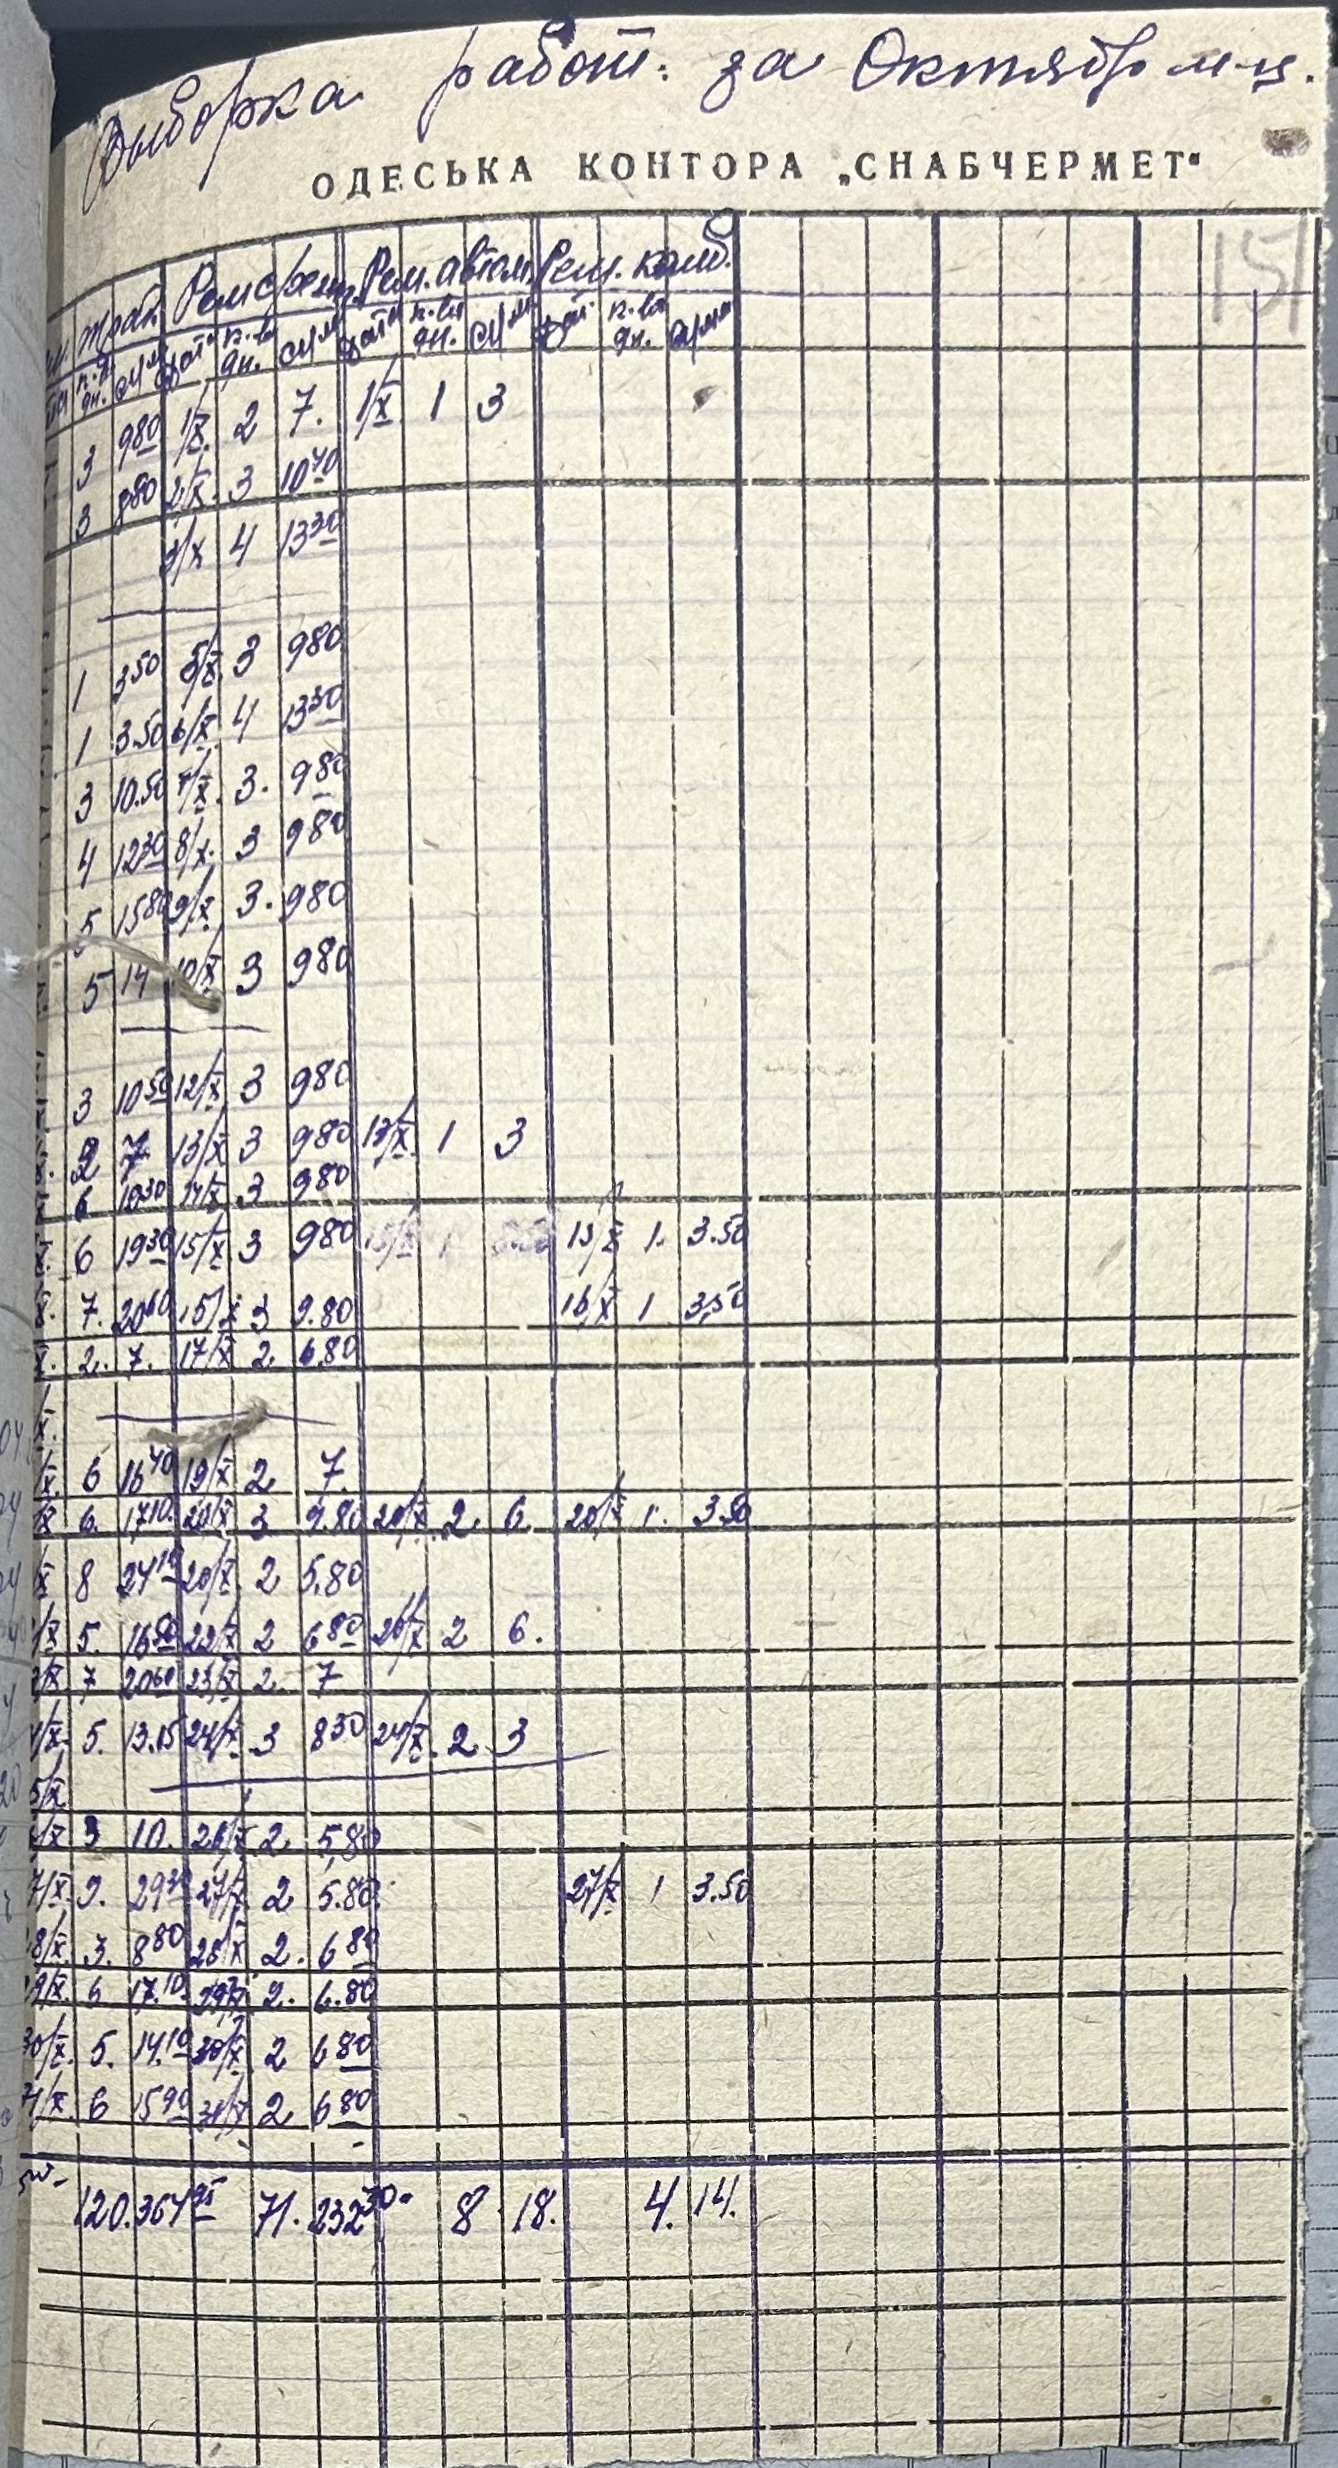 Выборка работ. за Октябр м-ц.
ОДЕСЬКА КОНТОРА „СНАБЧЕРМЕТ“
151
трат. Рем с/хеш. Рем. автом. Рем. комб.
к-в дн. сум дат к-во дн. сум дат к-во дн. сум дат к-во дн. сума
3 980 1/X. 2 7. 1/X 1 3
3 880 2/X. 3 1040
3/X 4 1330
1 350 5/X. 3 980
1 3.50 6/X 4 1330
3 10.50 7/X. 3. 980
4 1230 8/X. 3 980
5 1580 9/X. 3. 980
5 14 10/X 3 980
3 1050 12/X 3 980
X. 2 7 13/X 3 980 13/X. 1 3
X 6 1930 14/X 3 980
X. 6 1930 15/X 3 980 15/X 1 3.50 15/X 1. 3.50
X. 7. 2060 15/X 3 9.80 16/X 1 3,50
X. 2. 7. 17/X 2 6.80
X.
X. 6 1640 19/X 2 7.
X 6. 1710. 20/X 3 9.80 20/X 2. 6. 20/X 1. 3.50
X 8 2410 20/X. 2 5.80
/X 5. 1680 22/X 2 680 26/X 2 6.
/X 7 2060 23/X 2. 7
/X. 5. 13.15 24/X. 3 850 24/X. 2. 3
5/X
/X 3 10. 26/X 2. 5,80
7/X. 9. 2930 27/X 2 5.80. 27/X 1 3.50
28/X. 3. 880 28/X 2. 680
29/X. 6 17.10. 29/X 2. 6.80
30/X. 5. 14.10 30/X. 2 680
31/X. 6 1590 31/X 2 680
120. 36495 71. 23230. 8. 18. 4. 14.